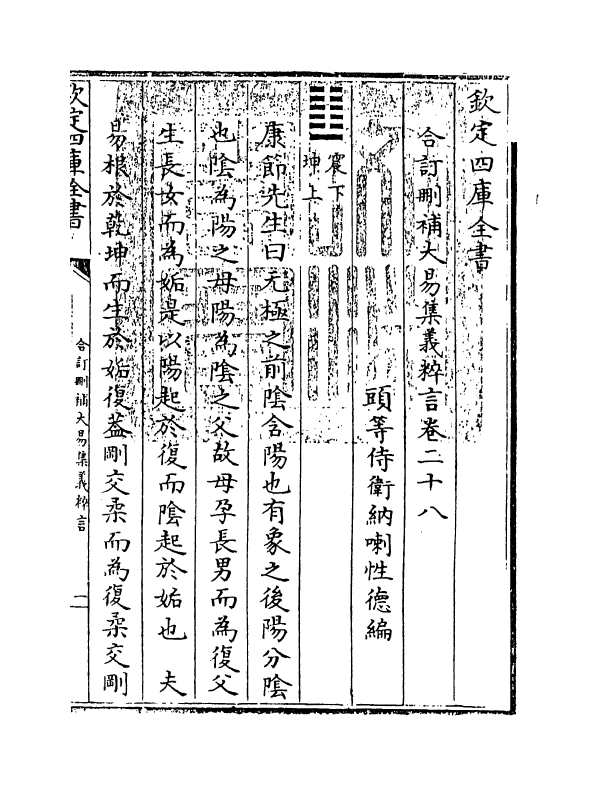 欽定四庫全書
合訂刪補大易集義粹言卷二十八
頭等侍衛納喇性德編
震下
坤上
康節先生曰无極之前陰含陽也有象之後陽分陰
也陰為陽之母陽為陰之父故母孕長男而為復父
生長女而為姤是以陽起於復而陰起於姤也 夫
易根於乾坤而生於姤復葢剛交柔而為復柔交剛
欽定四庫全書
合訂刪補大易集義粹言